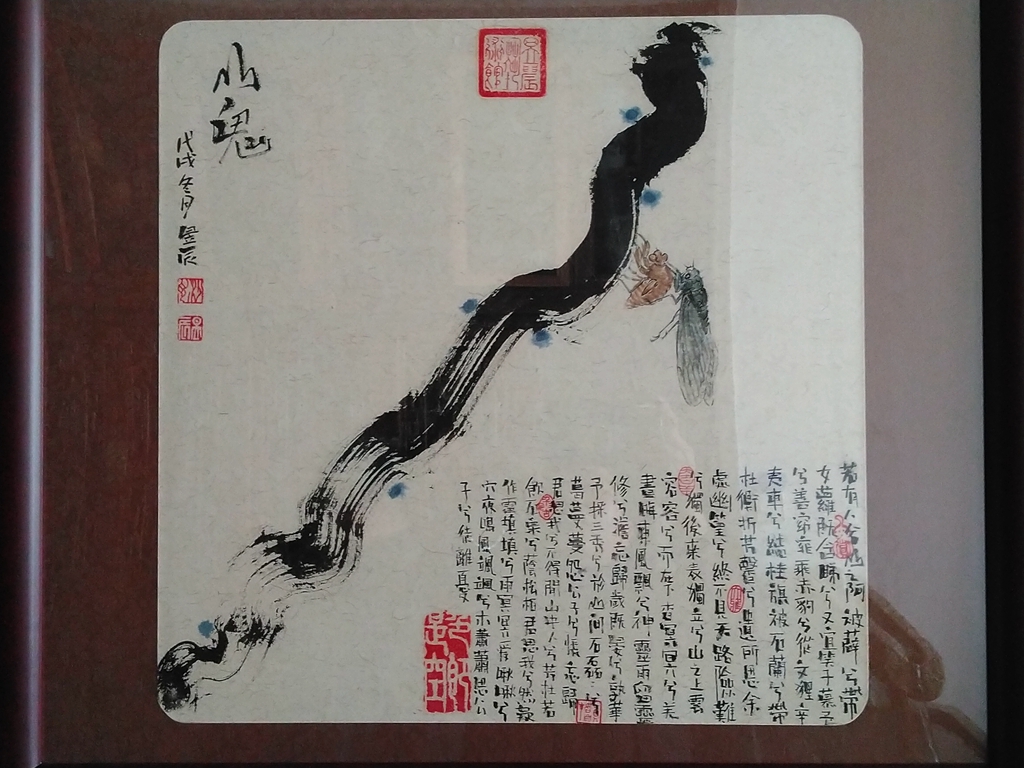 山鬼
戊戌冬月
若有人兮山之阿被薜兮帶
女蘿既含睇兮又宜笑子慕予
兮善窈窕乘赤豹兮從文貍辛
夷車兮結桂旗被石蘭兮帶
杜衡折芳馨兮遺所思余
處幽篁兮終不見天路險難
兮獨後來表獨立兮山之上雲
容容兮而在下杳冥冥兮羌
晝晦東風飄兮神靈雨留靈
修兮憺忘歸歲既晏兮孰華
予採三秀兮於山间石磊磊兮
葛蔓蔓怨公子兮悵忘歸
君思我兮不得閒山中人兮芳杜若
飲石泉兮蔭松柏君思我兮然疑
作雷填填兮雨冥冥猨啾啾兮
狖夜鳴風颯颯兮木蕭蕭思公
子兮徒離憂